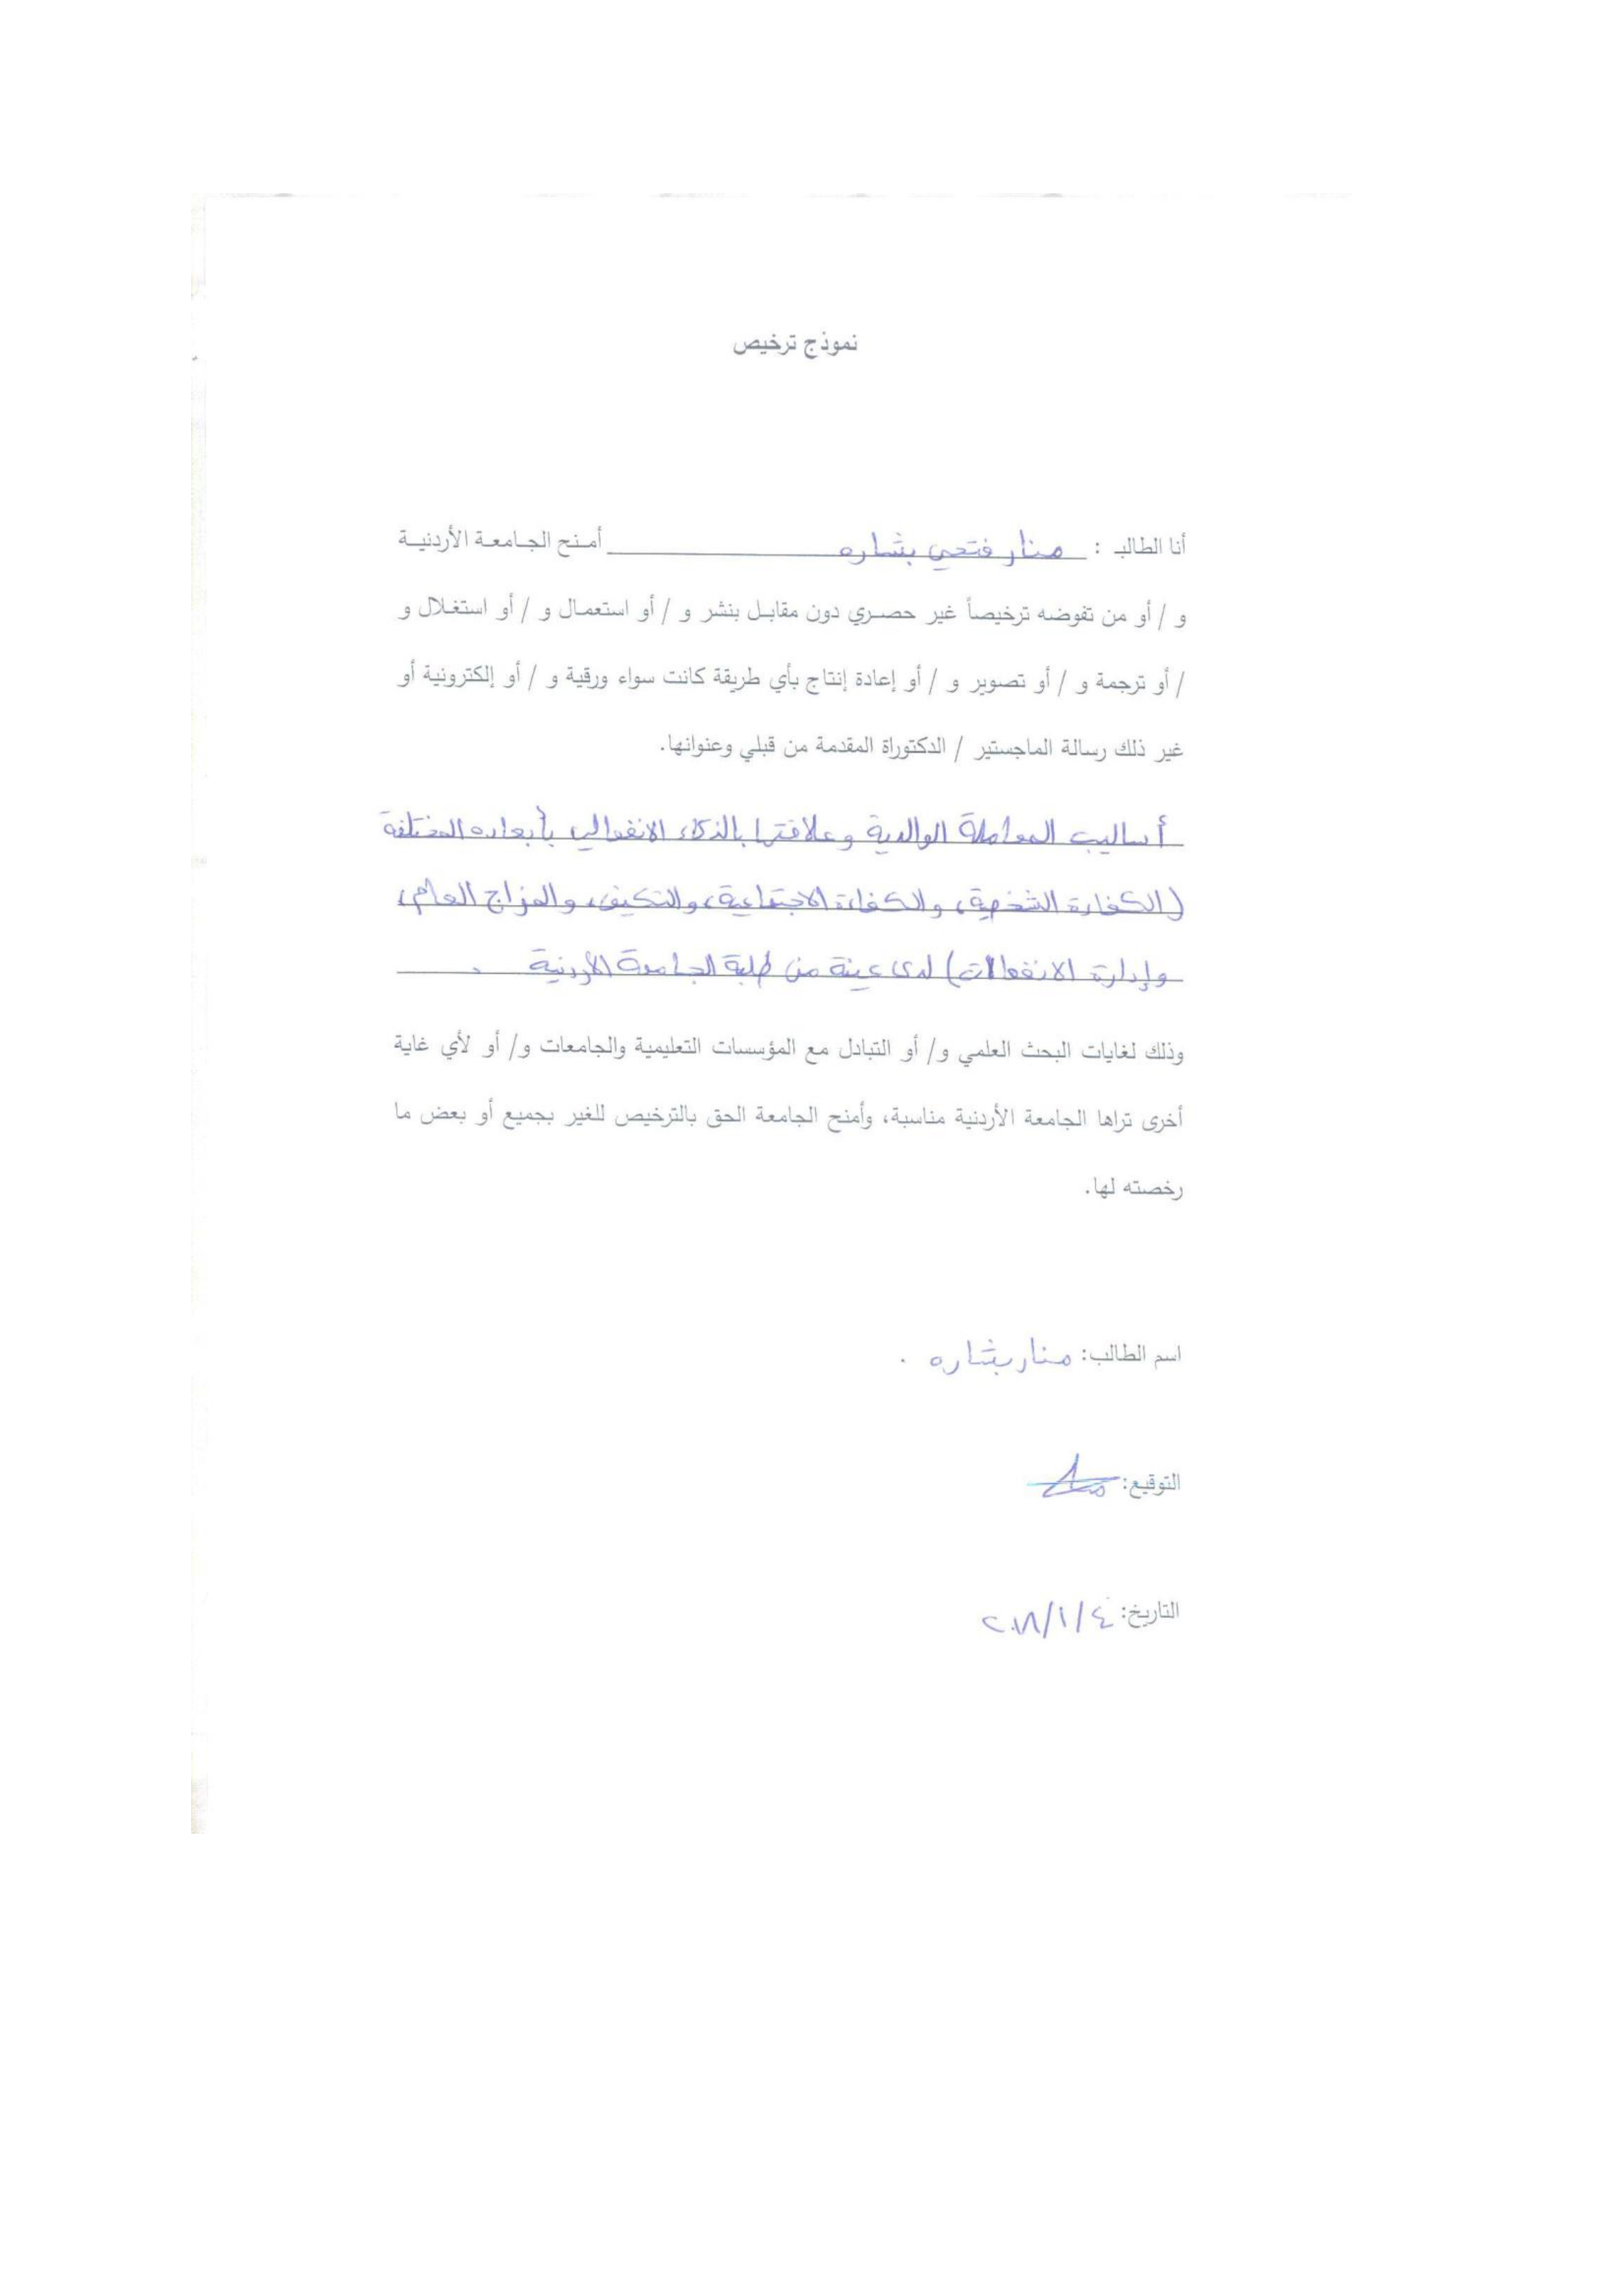 نموذج ترخيص
أنا الطالب : منار فتحي بشاره أمنح الجامعة الأردنية
و / أو من تفوضه ترخيصاً غير حصري دون مقابل بنشر و / أو استعمال و / أو استغلال و
/ أو ترجمة و / أو تصوير و / أو إعادة إنتاج بأي طريقة كانت سواء ورقية و / أو إلكترونية أو
غير ذلك رسالة الماجستير / الدكتوراة المقدمة من قبلي وعنوانها.
أساليب المعاملة الوالدية وعلاقتها بالذكاء الانفعالي بأبعاده المختلفة
(الكفاءة الشخصية، والكفاءة الاجتماعية، والتكيف، والمزاج العام،
وإدارة الانفعالات) لدى عينة من طلبة الجامعة الأردنية .
وذلك لغايات البحث العلمي و/ أو التبادل مع المؤسسات التعليمية والجامعات و/ أو لأي غاية
أخرى تراها الجامعة الأردنية مناسبة، وأمنح الجامعة الحق بالترخيص للغير بجميع أو بعض ما
رخصته لها.
اسم الطالب: منار بشاره .
التوقيع:
التاريخ: ٤/١/٢٠١٨